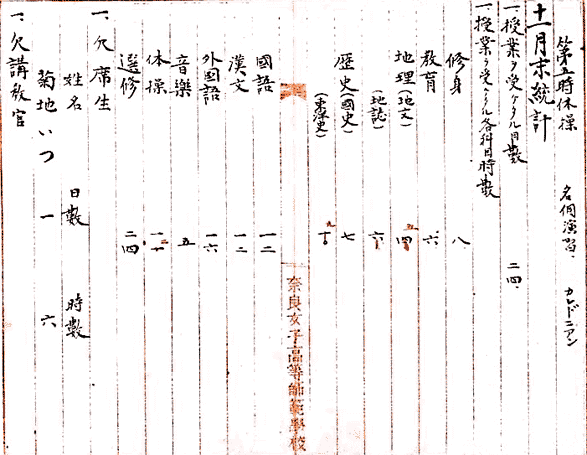 第五時休操 各個演習、カレドニアン
十一月末統計
一、授業ヲ受ケタル日数 二四、
一、授業ヲ受ケタル各科目時数
修身 八
教育 六
地理(地文) 四 五
(地誌) 六
歴史(國史) 七
(東洋史) 十 九
奈良女子高等師範學校
國語 一二
漢文 一二
外國語 一六
音樂 五
体操
選修 二四
一、欠席生
姓名 日數 時數
菊地いつ 一 六
一、欠講教官